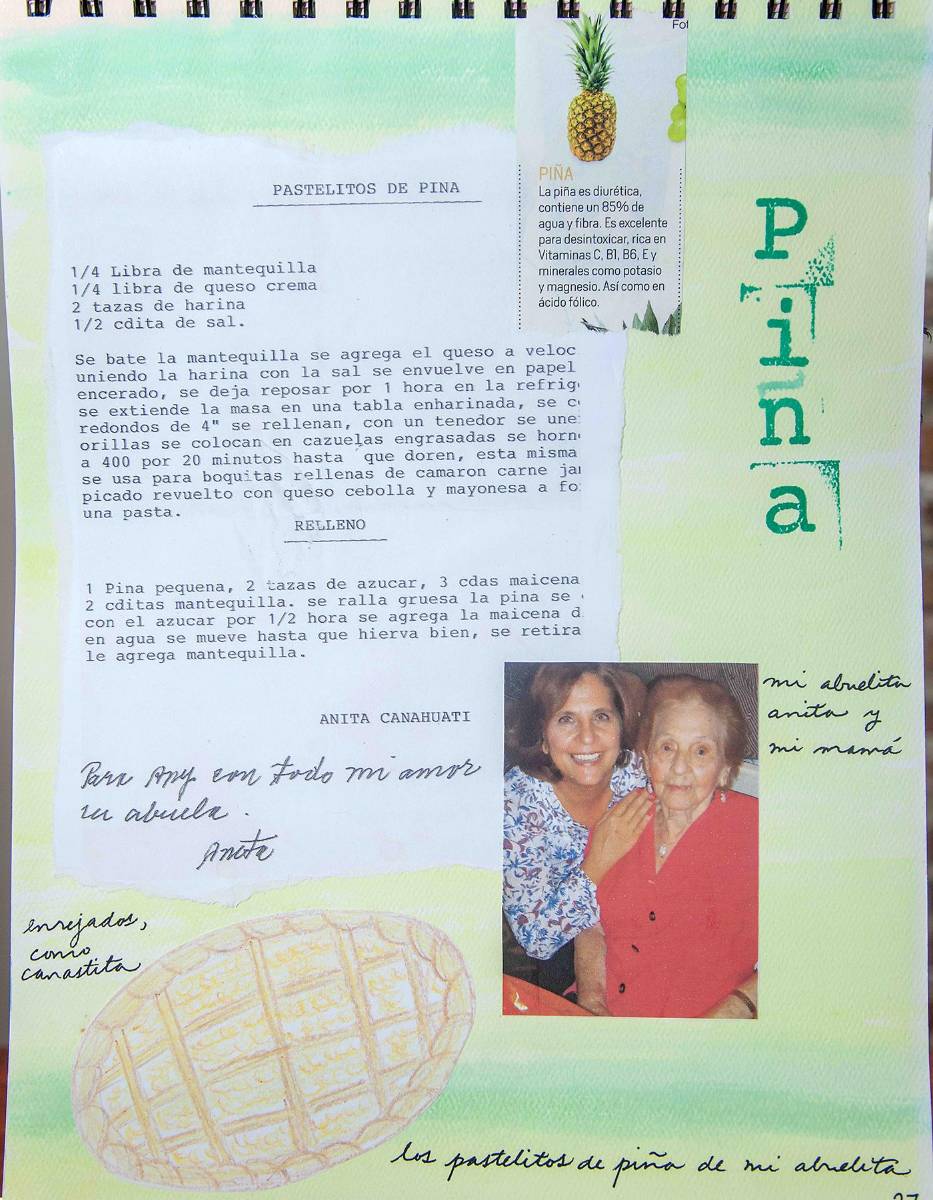 Fot
PIÑA
La piña es diurética,
contiene un 85% de
agua y fibra. Es excelente
para desintoxicar, rica en
Vitaminas C, B1, B6, E y
minerales como potasio
y magnesio. Así como en
ácido fólico.
Pina
PASTELITOS DE PINA
1/4 Libra de mantequilla
1/4 libra de queso crema
2 tazas de harina
1/2 cdita de sal.
Se bate la mantequilla se agrega el queso a veloc
uniendo la harina con la sal se envuelve en papel
encerado, se deja reposar por 1 hora en la refrig
se extiende la masa en una tabla enharinada, se c
redondos de 4" se rellenan, con un tenedor se une
orillas se colocan en cazuelas engrasadas se horn
a 400 por 20 minutos hasta que doren, esta misma
se usa para boquitas rellenas de camaron carne ja
picado revuelto con queso cebolla y mayonesa a fo
una pasta.
RELLENO
1 Pina pequena, 2 tazas de azucar, 3 cdas maicena
2 cditas mantequilla. se ralla gruesa la pina se
con el azucar por 1/2 hora se agrega la maicena d
en agua se mueve hasta que hierva bien, se retira
le agrega mantequilla.
ANITA CANAHUATI
Para Any con todo mi amor
su abuela.
Anita
mi abuelita
anita y
mi mamá
enrejados,
como
canastita
los pastelitos de piña de mi abuelita
27